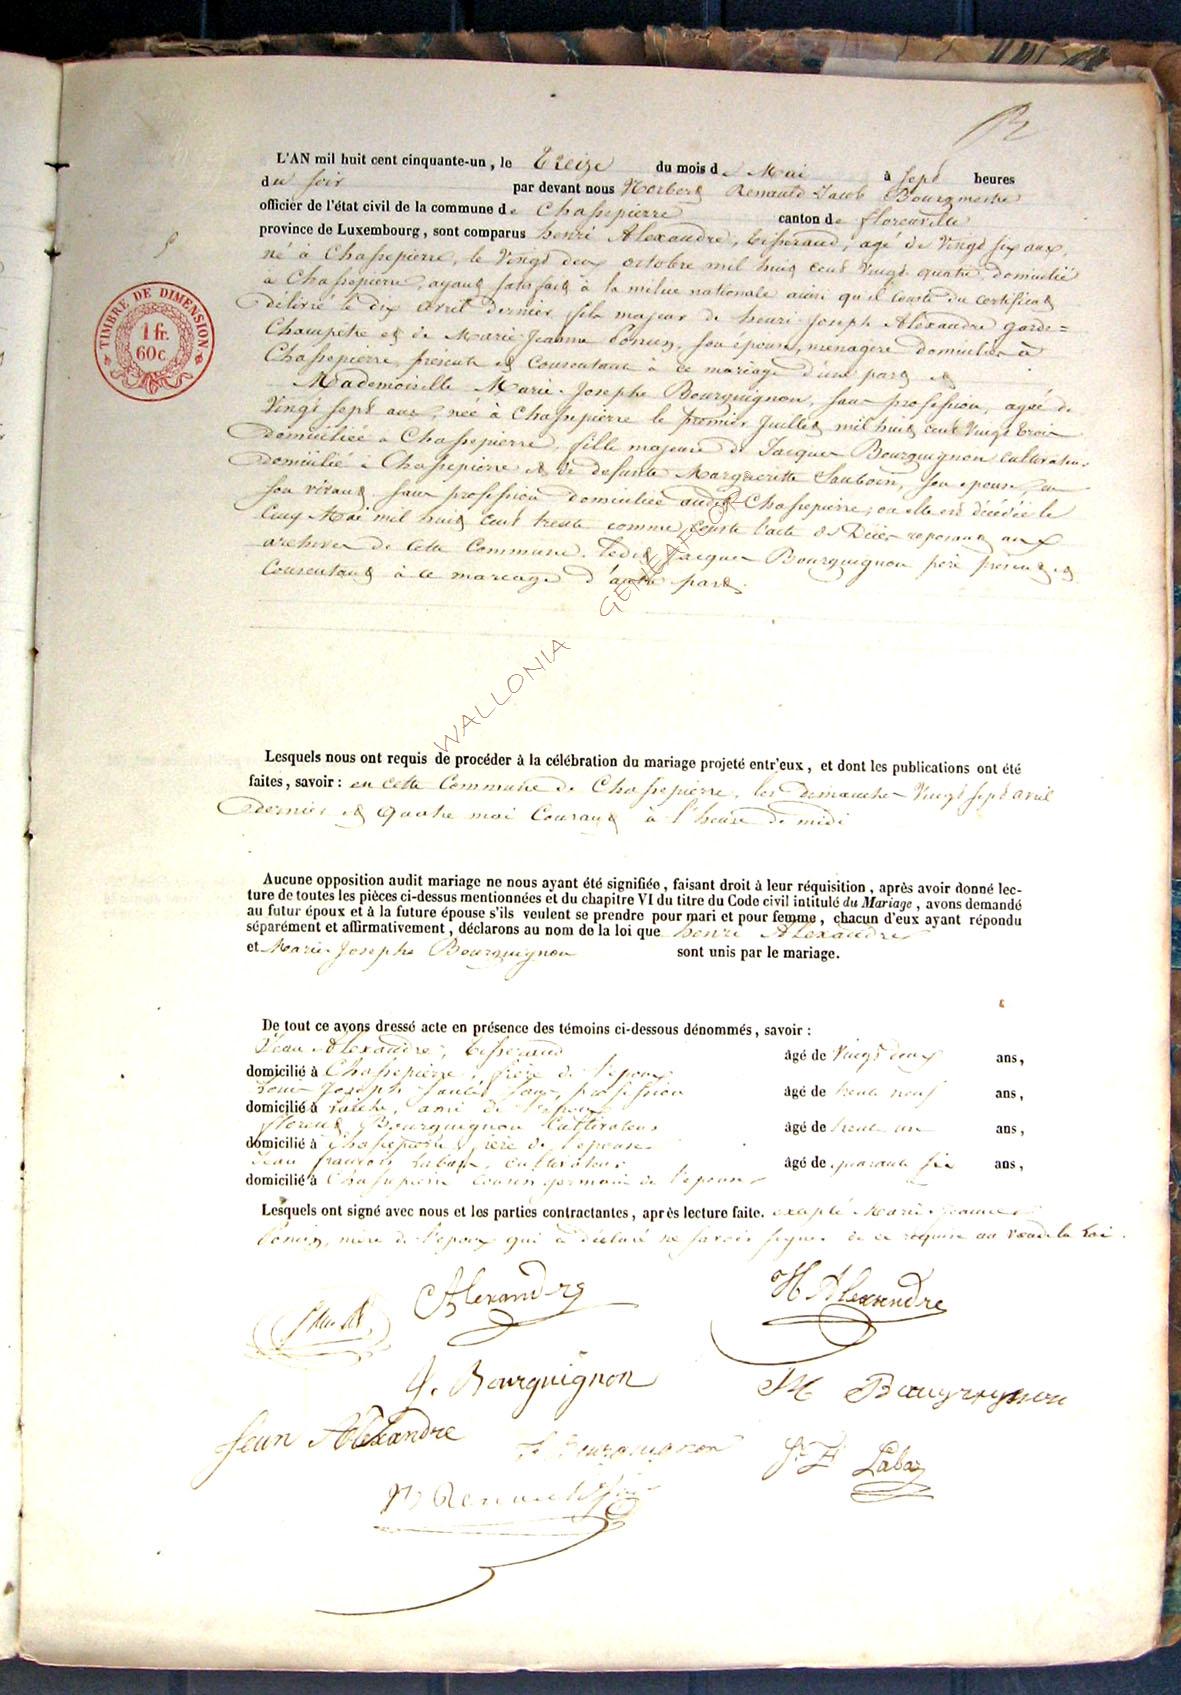 L'AN mil huit cent cinquante-un, le treize du mois de Mai à sept heures
du soir par devant nous Norbert Renauld Jacob Bourgmestre
officier de l'état civil de la commune de Chassepierre canton de florenville
province de Luxembourg, sont comparus henri Alexandre, tisserand, agé de vingt six ans,
né à Chassepierre, le vingt deux octobre mil huit cent vingt quatre, domicilié
à Chassepierre, ayant satisfait à la milice nationale ainsi qu'il conste du certificat
délivré le dix avril dernier, fils majeur de henri Joseph Alexandre garde=
Champêtre et de Marie Jeanne son épouse, ménagère domiciliés à
Chassepierre, présents et Consentant à ce mariage d'une part et
Mademoiselle Marie Josephe Bourguignon, sans profession, agée de
vingt sept ans, née à Chassepierre le premier Juillet mil huit cent vingt trois
domiciliée à Chassepierre, fille majeure de Jacques Bourguignon cultivateur
domicilié à Chassepierre et de defunte Marguerite son épouse en
son vivant sans profession domiciliée audit Chassepierre, où elle est décédée le
Cinq Mai mil huit cent trente comme conste l'acte de Décès reposant aux
archives de Cette Commune. Ledit Jacques Bourguignon père présent et
Consentant à ce mariage d'autre part.
TIMBRE DE DIMENSION
1 fr.
60 c.
WALLONIA GENEAFOOT
Lesquels nous ont requis de procéder à la célébration du mariage projeté entr'eux, et dont les publications ont été
faites, savoir : en cette Commune de Chassepierre, les dimanches vingt sept avril
dernier et quatre mai Courant à l'heure de midi
Aucune opposition audit mariage ne nous ayant été signifiée, faisant droit à leur réquisition, après avoir donné lec-
ture de toutes les pièces ci-dessus mentionnées et du chapitre VI du titre du Code civil intitulé du Mariage, avons demandé
au futur époux et à la future épouse s'ils veulent se prendre pour mari et pour femme, chacun d'eux ayant répondu
séparément et affirmativement, déclarons au nom de la loi que henri Alexandre
et Marie Josephe Bourguignon sont unis par le mariage.
De tout ce avons dressé acte en présence des témoins ci-dessous dénommés, savoir :
Jean Alexandre, tisserand âgé de vingt deux ans,
domicilié à Chassepierre, frère de l'epoux
Louis Joseph sans profession âgé de trente neuf ans,
domicilié à Laiche, ami de l'epoux
florent Bourguignon Cultivateur âgé de trente un ans,
domicilié à Chassepierre frère de l'epouse
Jean françois Labass, cultivateur âgé de quarante six ans,
domicilié à Chassepierre cousin germain de l'epouse
Lesquels ont signé avec nous et les parties contractantes, après lecture faite. excepté Marie Jeanne
mere de l'epoux qui a déclaré ne savoir signer de ce requise au vœu de la loi.
Alexandre H Alexandre
J. Bourguignon M Bourguignon
Jean Alexandre F Bourguignon Labas
N Renauld